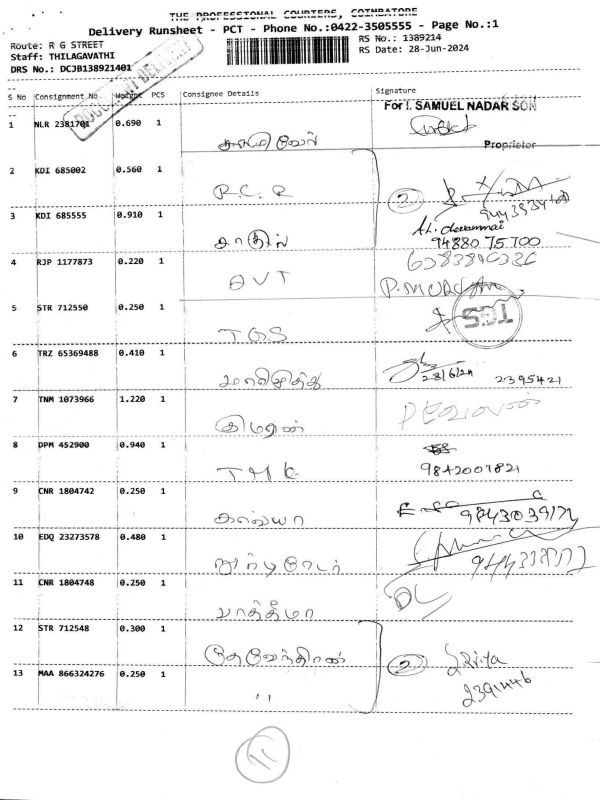 THE PROFESSIONAL COURIERS, COIMBATORE
Delivery Runsheet - PCT - Phone No.:0422-3505555 - Page No.:1
Route: R G STREET
RS No.: 1389214
Staff: THILAGAVATHI
RS Date: 28-Jun-2024
DRS No.: DCJB138921401
S No Consignment No. Weight PCS Consignee Details Signature
For I. SAMUEL NADAR SON
1 NLR 2381701 0.690 1
Proprietor
2 KDI 685002 0.560 1 P.C.R 2
3 KDI 685555 0.910 1 AL. devammai
9488075700
4 RJP 1177873 0.220 1 AVT
5 STR 712550 0.250 1 TGS TGS
6 TRZ 65369488 0.410 1 மாரிமுத்து 28/6/24 2395421
7 TNM 1073966 1.220 1
8 DPM 452900 0.940 1 TMK 9842007821
9 CNR 1804742 0.250 1 காவ்யா
10 EDQ 23273578 0.480 1
11 CNR 1804748 0.250 1 பாத்திமா DL
12 STR 712548 0.300 1 தேவேந்திரன் 2 Priya
2391446
13 MAA 866324276 0.250 1 ''
11